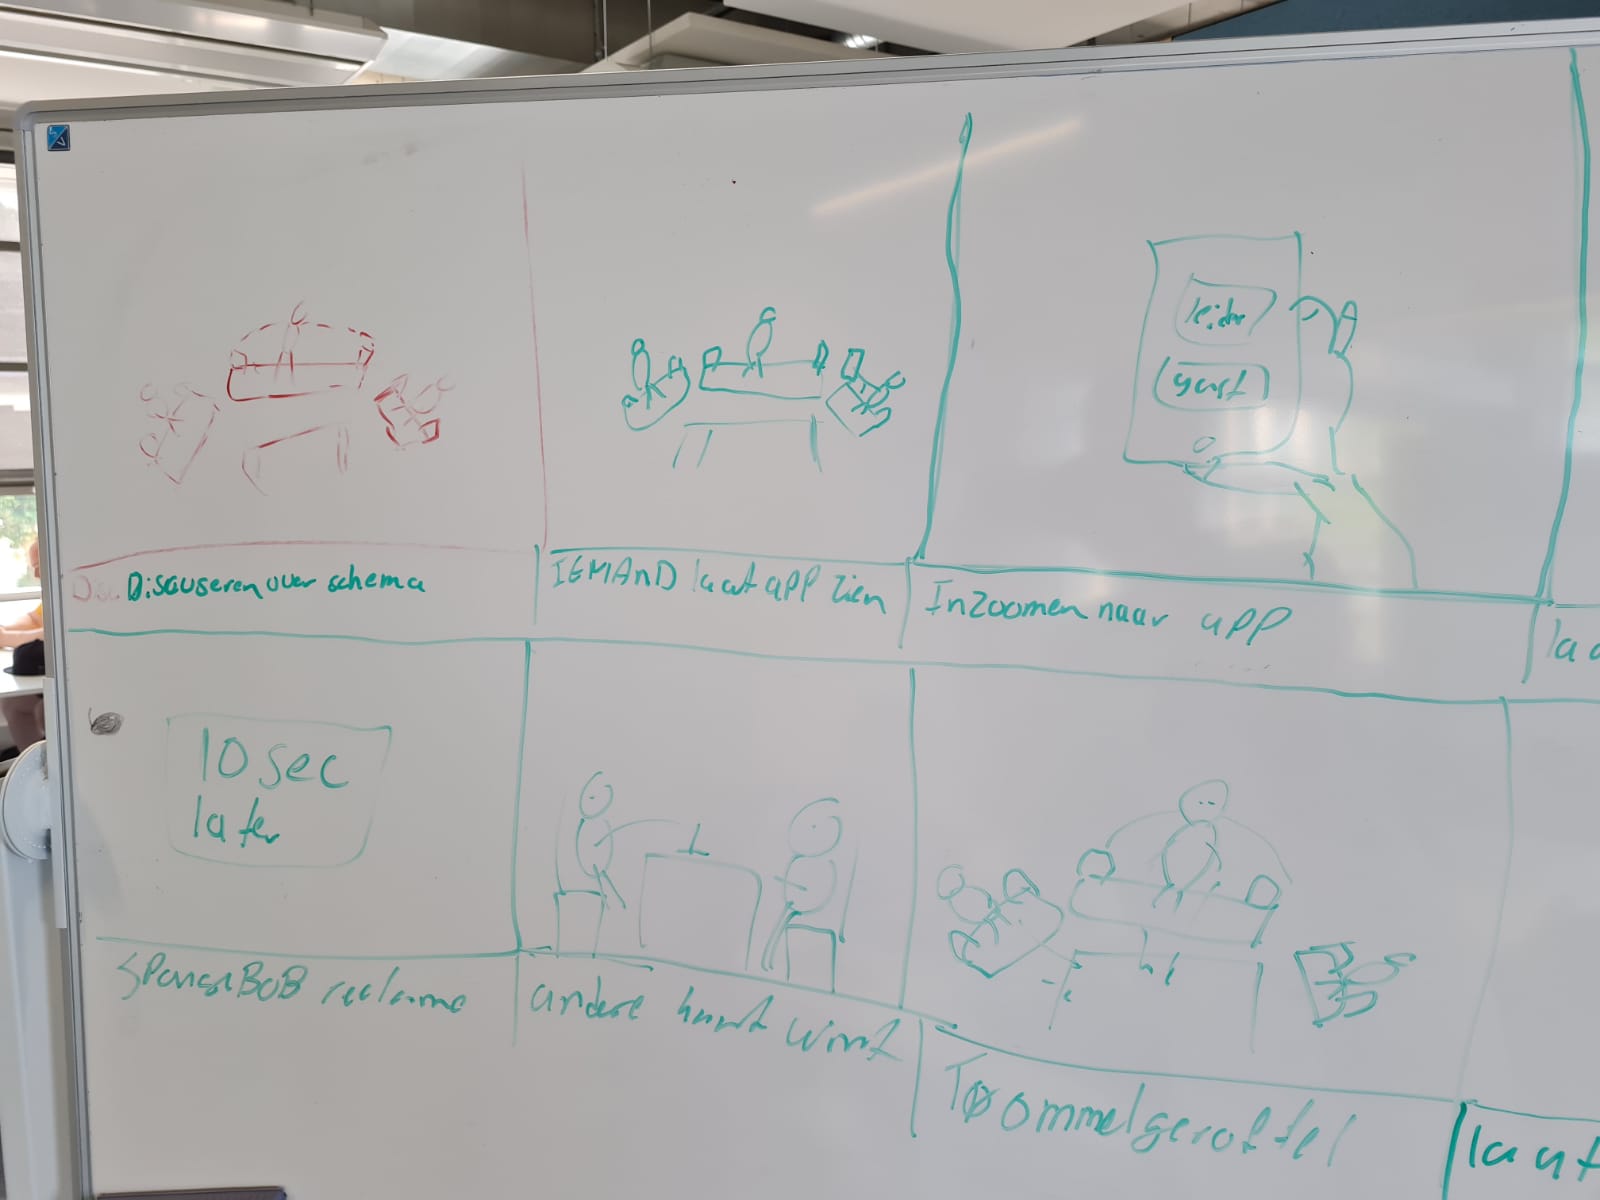 leider
gast
Discuseren over schema
IEMAnD laat app zien
Inzoomen naar app
laa
10 sec
later
SPongeBoB reclame
andere kant wint
Trommelgeroffel
laat